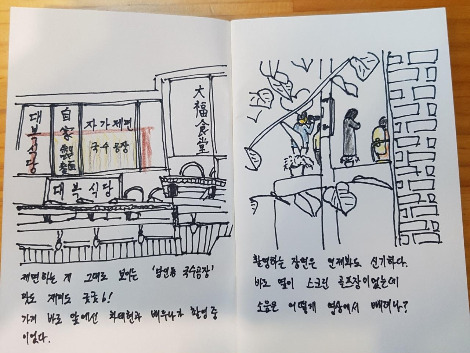 대복식당
自家製麵
자가제면
국수공장
大福食堂
대복식당
제면하는 게 그대로 보이는 국수공장'
맛도 재미도 굿굿!
가게 바로 앞에선 배우나가 촬영 중
이었다.
촬영하는 장면은 언제봐도 신기하다.
바로 옆이 스크린 골프장이었는데
소음은 어떻게 영상에서 빼려나?